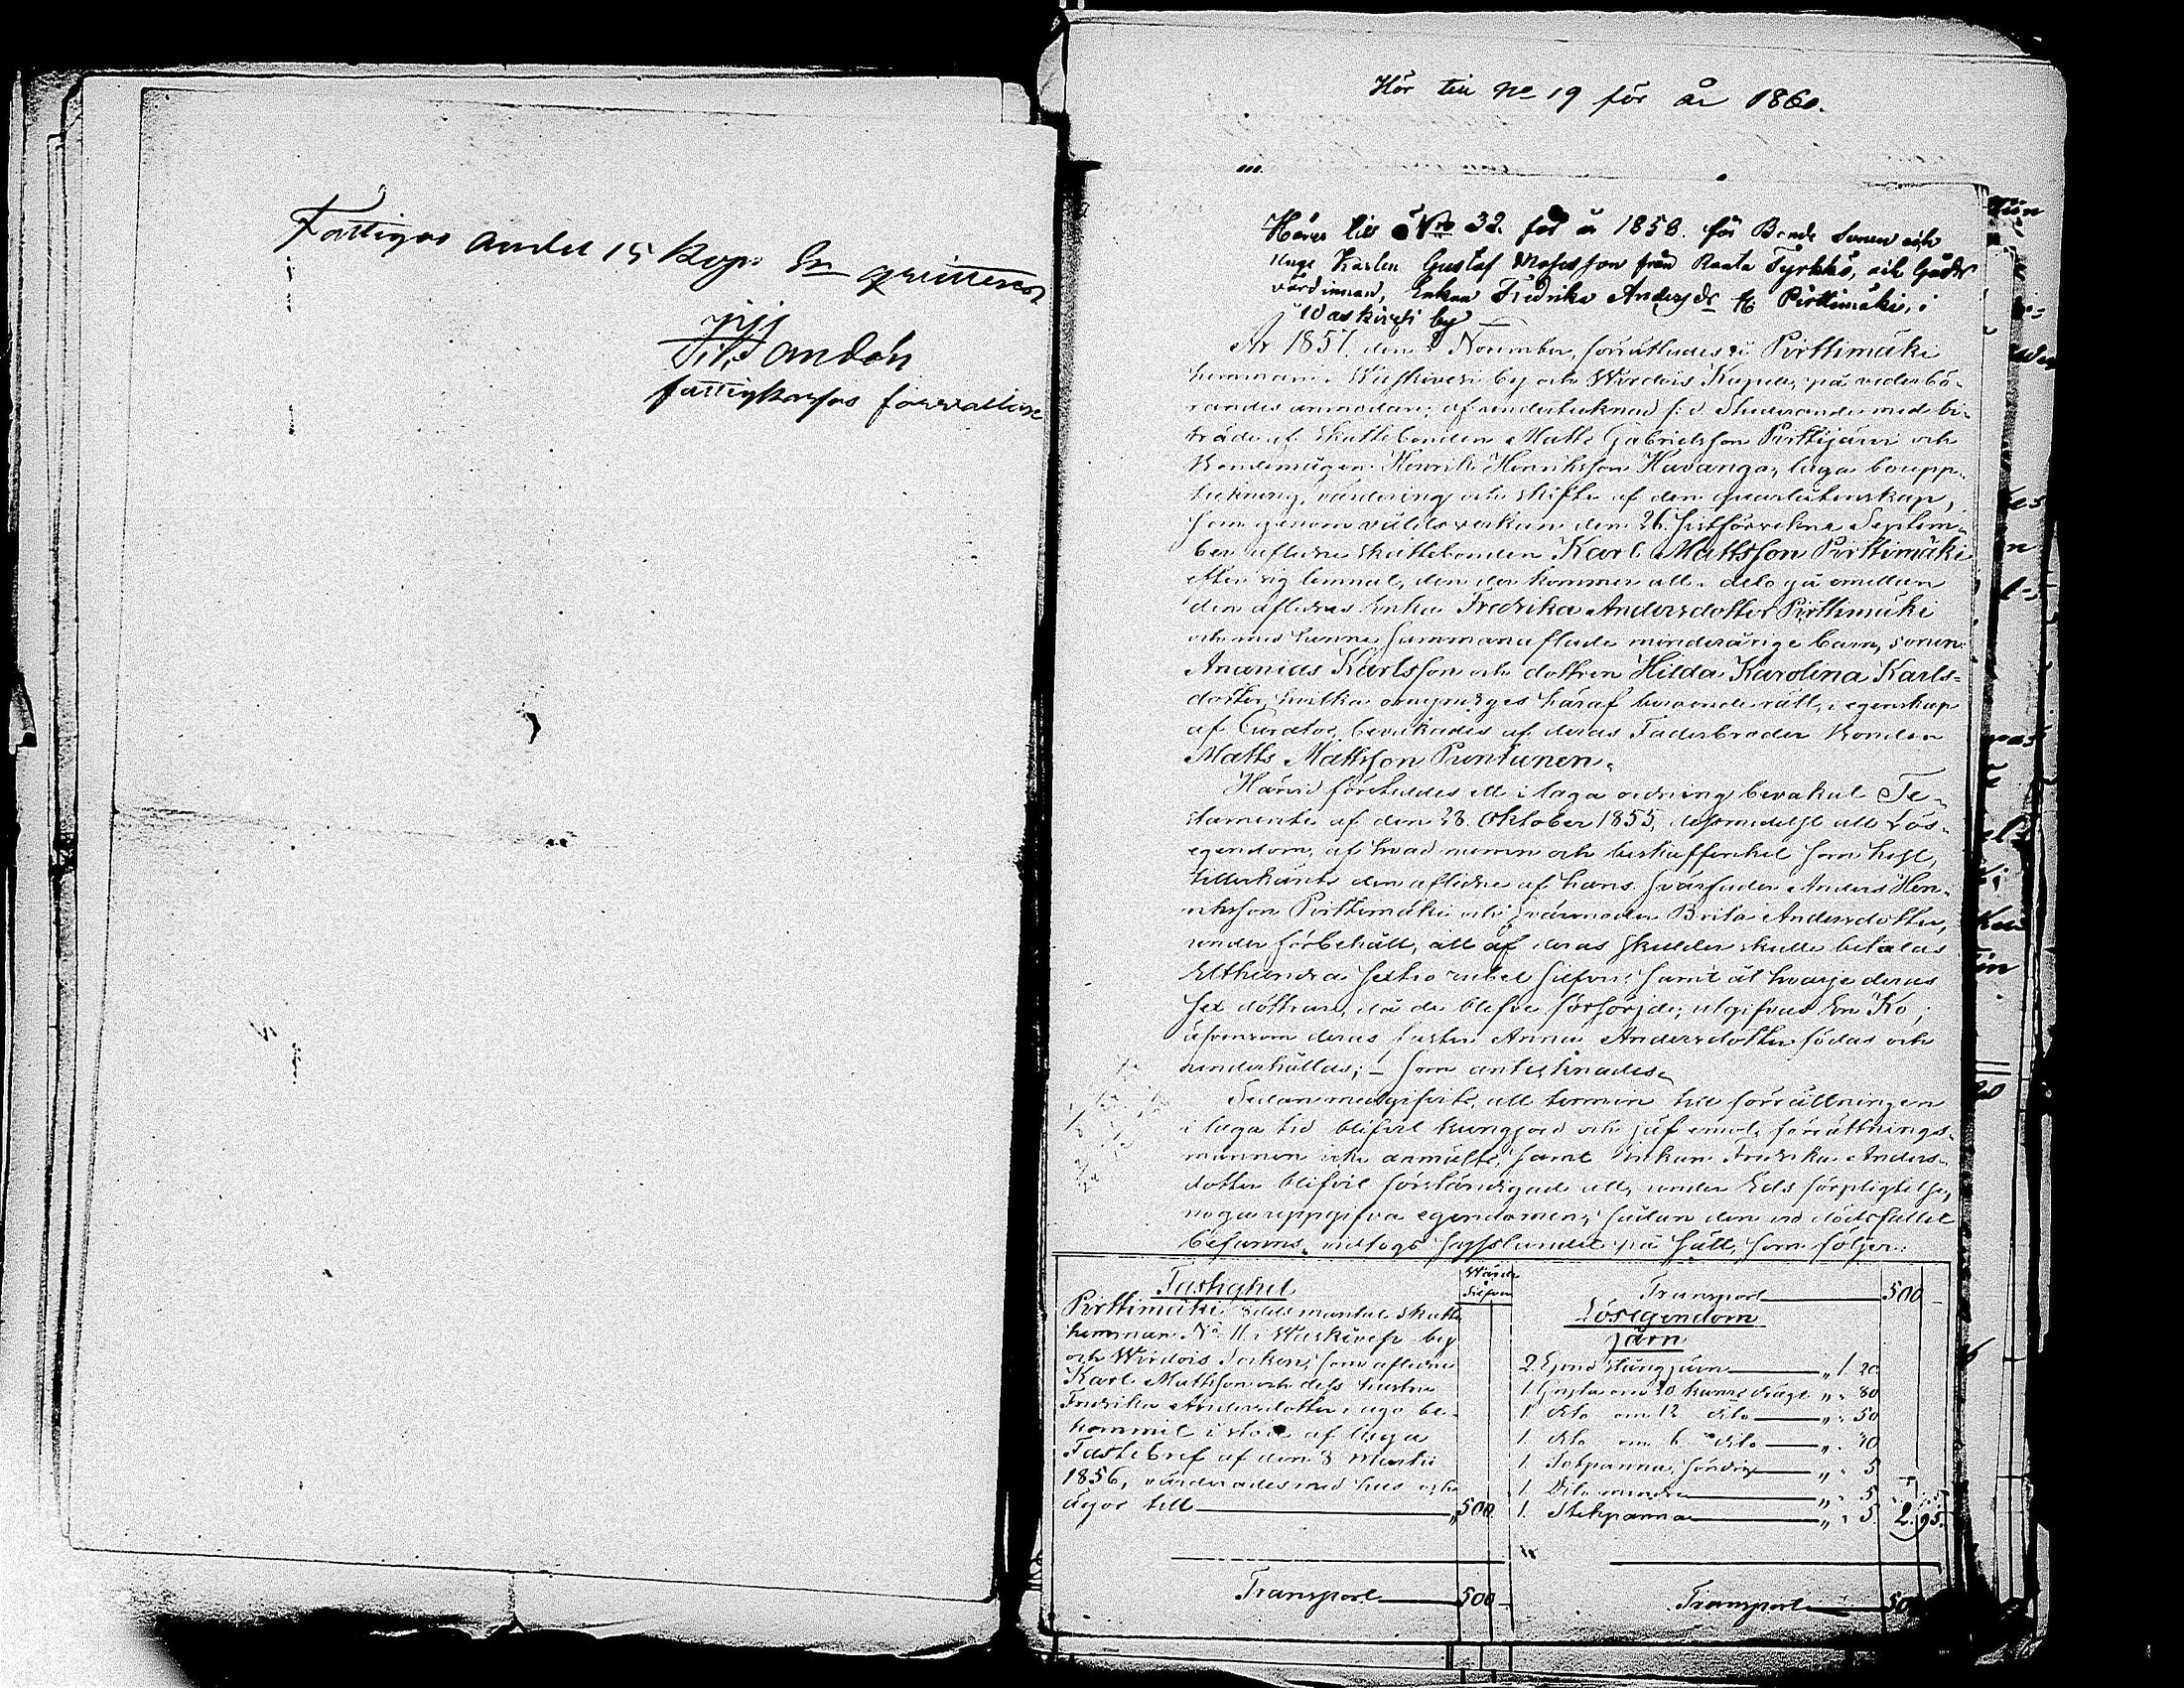 Fattigas andel 15 kop. Sr qvitteras
fattigkassas förvaltare
Hör till No 19 för år 1860.
Hörer till No 32 för år 1858. för Bonde Sonen och
unge Karlen Gustaf Mosesson från Ranta Tyrkkö, och Gårds
värdinnan, Enkan Fredrika Andersdr fr. Pirttimäki, i
Waskivesi by —
År 1857 den November, förrättades å Pirttimäki
hemman i Waskivesi by och Wirdois Kapell, på vederbö-
randes anmodan, af undertecknad f. d. Studerande med bi-
träde af Skattebonden Matts Gabrielsson Pirttijärvi och
Bondemågen Henrik Henriksson Havanga, laga boupp-
teckning, värdering och skifte af den qvarlåtenskap,
som genom våldsverkan den 26 sistförvekne Septem-
ber aflidne skattebonden Karl Mattsson Pirttimäki
efter sig lemnat, den der kommer att i delo gå emellan
den aflidnes Enka Fredrika Andersdotter Pirttimäki
och med henne sammanaflade minderårige barn, sonen
Ananias Karlsson och dottren Hilda Karolina Karls-
dotter, hvilka omyndiges häraf beroende rätt, i egenskap
af Curator, bevakades af deras Faderbroder Bonden
Matts Mattsson Puntunen.
Härvid företeddes ett i laga ordning bevakat Te-
stamente af den 28 Oktober 1855, desmedelst all Lös-
egendom, af hvad namn och beskaffenhet som helst,
tillerkänts den aflidne af hans svärfader Anders Hen-
riksson Pirttimäki och svärmoder Brita Andersdotter,
under förbehåll, att af deras skulder skulle betalas
Etthundra sextio rubel silfver samt åt hvarje deras
sex döttrar, då de blefve försörjde, utgifvas En Ko,
äfvensom deras syster Anna Andersdotter födas och
underhållas; — som antecknades.
Sedan medgifvits, att termin till förrättningen
i laga tid blifvit kungjord och jäf emot förrättnings-
mannen icke anmälts, samt Enkan Fredrika Anders-
dotter blifvit förständigad att, under Eds förpligtelse,
noga uppgifva egendomen, sådan den vid dödsfallet
befanns, vidtogs hufvudsakligen på sätt, som följer:
Fasthghet
Wärde
Silfver
Pirttimäki mantal skatte
hemman No 11 i Waskivesi by
och Wirdois Socken, som aflidne
Karl Mattsson och dess hustru
Fredrika Andersdotter i ägo be-
kommit i stöd af laga
Fastebref af den 3 Martii
1856, värderades med hus och
ägor till — 500.
Transport — 500 —
Transport — 500 —
Lösegendom
Järn
2. stångjern — „ 1. 20.
1. Gryta om 20 kannors drägt „ „ 80
1. dito om 12 dito — „ „ 50
1. dito om 6 dito — „ „ 10
1. — „ „ 5
1. Dito mindre — „ „ 5
1. Stekpanna — „ „ 5. 2. 95.
Transport — 50